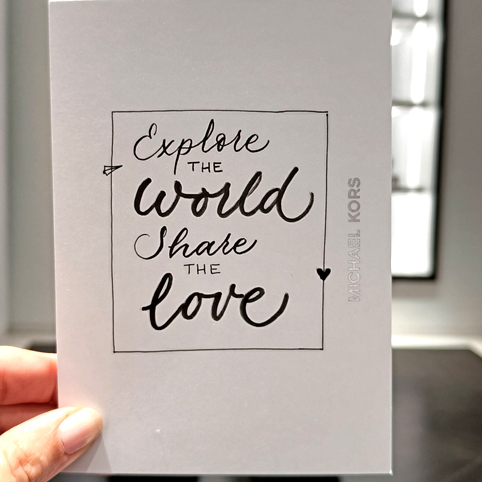 Explore
THE
World
Share
THE
love
MICHAEL KORS